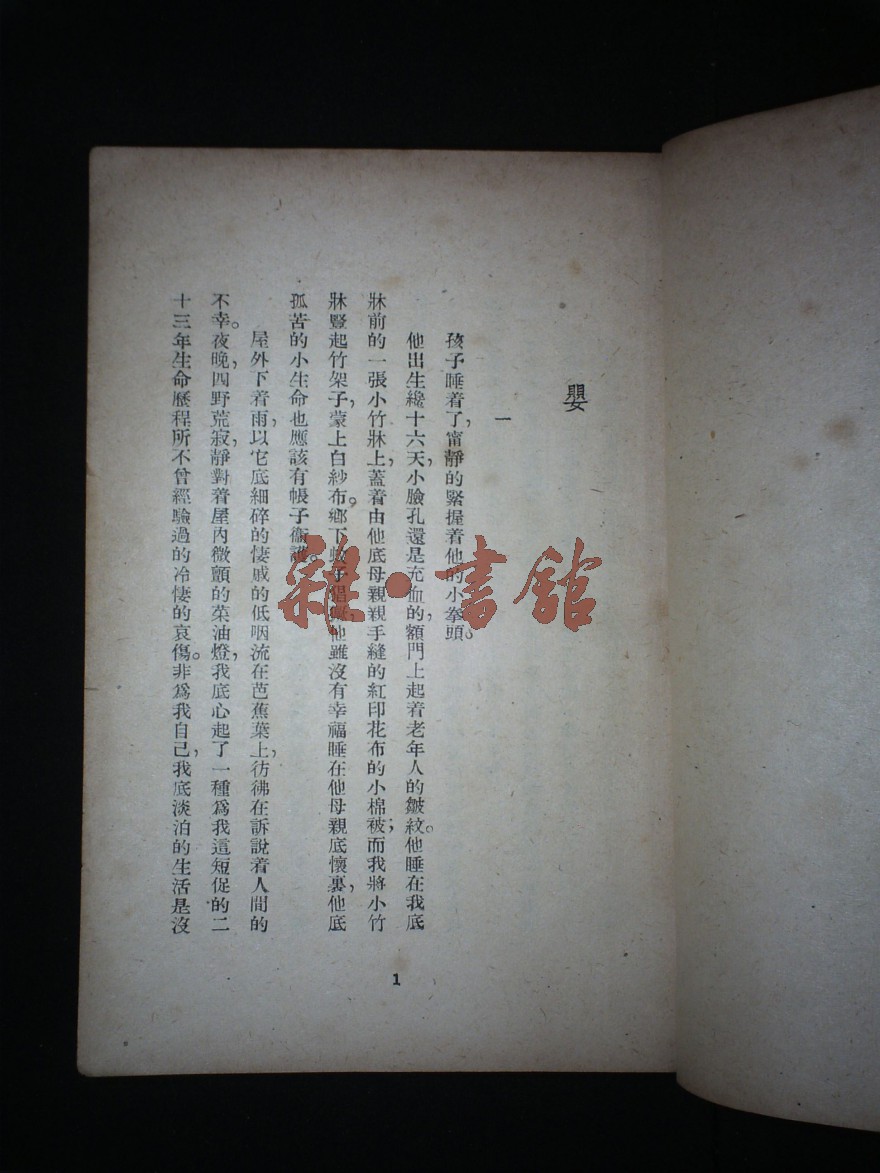 嬰
一
孩子睡着了，甯靜的緊握着他的小拳頭。
他出生纔十六天，小臉孔還是充血的，額門上起着老年人的皺紋。他睡在我底
牀前的一張小竹牀上，蓋着由他底母親親手縫的紅印花布的小棉被；而我將小竹
牀豎起竹架子，蒙上白紗布。鄉下蚊子猖，他雖沒有幸福睡在他母親底懷裏，他底
孤苦的小生命也應該有帳子衞護。
屋外下着雨，以它底細碎的悽戚的低咽流在芭蕉葉上，彷彿在訴說着人間的
不幸。夜晚，四野荒寂，靜對着屋內微顫的菜油燈，我底心起了一種爲我這短促的二
十三年生命歷程所不曾經驗過的冷悽的哀傷。非爲我自己，我底淡泊的生活是沒
1
雜·書館